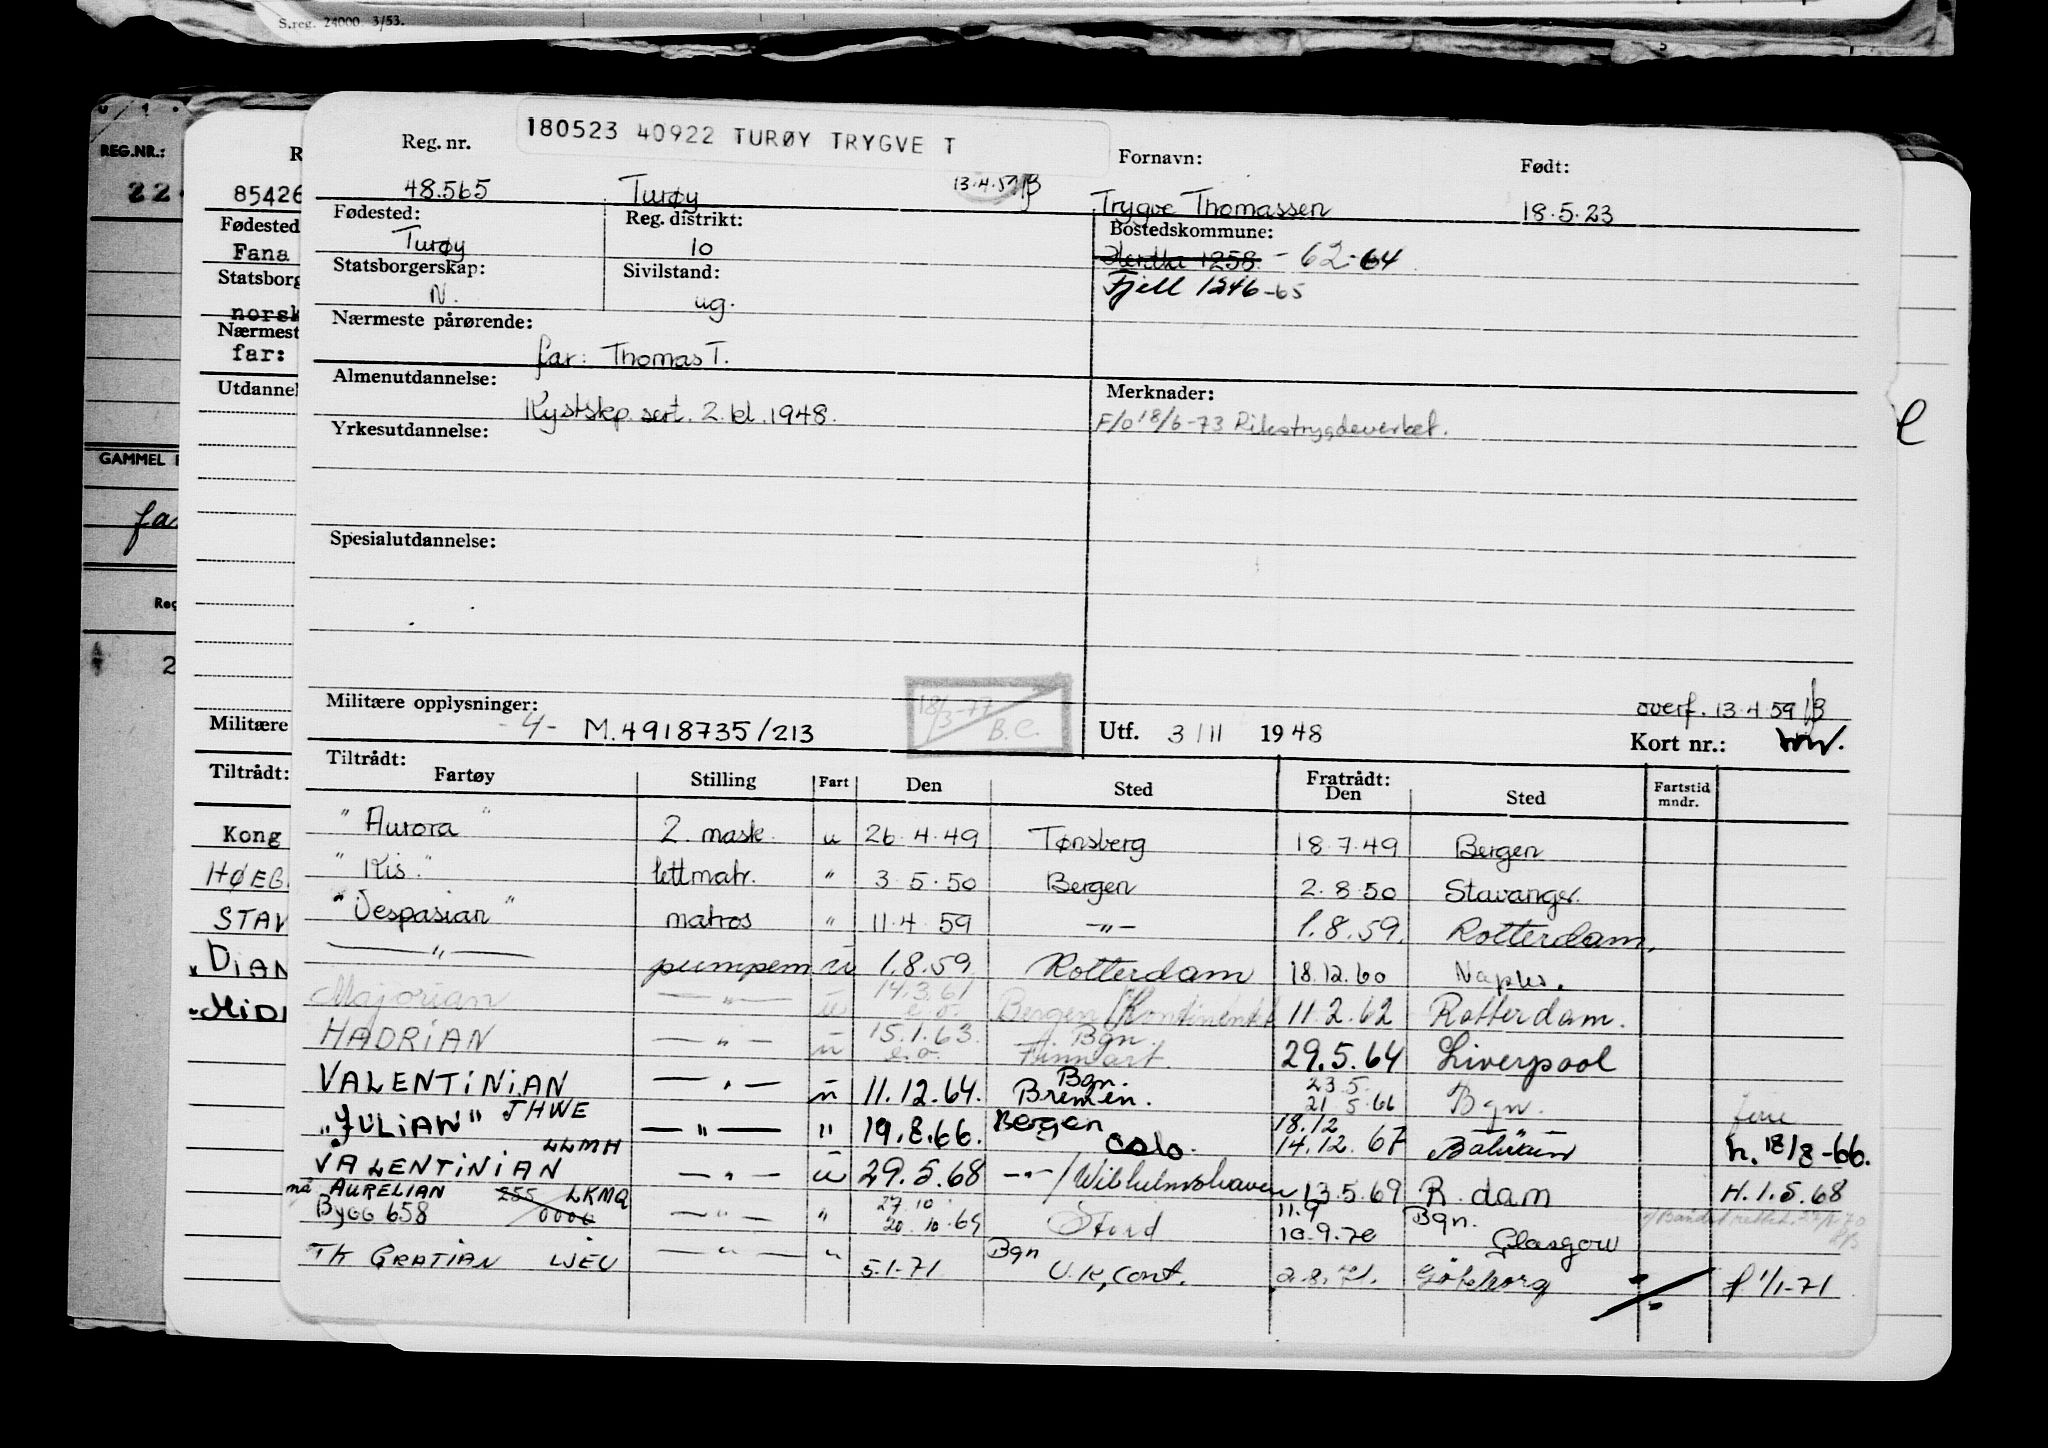 S.reg. 24000 3/53.
REG.NR.:
GAMMEL
fa
85426
Fødested
Fana
Statsborg
norsk
Nærmest
far:
Utdannel
Militære
Tiltrådt:
Kong
HØEG
STAV
"DIAN
"MIDI
180523 40922 TURØY TRYGVE T
Reg. nr. Fornavn: Født:
48.565 Turøy 13.4.59 Trygve Thomassen 18.5.23
Fødested: Reg. distrikt: Bostedskommune:
Turøy 10 Herdla 1258 - 62-64
Statsborgerskap: Sivilstand: Fjell 1246-65
N. ug.
Nærmeste pårørende:
far: Thomas T.
Almenutdannelse: Merknader:
Kystskp. sert. 2. kl. 1948. F/o 18/6-73 Rikstrygdeverket.
Yrkesutdannelse:
Spesialutdannelse:
Militære opplysninger: 18/3-77 B.C. overf. 13.4.59
-4- M.4918735/213 Utf. 3/11 1948 Kort nr.:
Tiltrådt: Fratrådt:
Fartøy Stilling Fart Den Sted Den Sted Fartstid mndr.
"Aurora" 2. mask. u 26.4.49 Tønsberg 18.7.49 Bergen
"Kis" lettmatr. " 3.5.50 Bergen 2.8.50 Stavanger.
"Vespasian" matros " 11.4.59 —"— 1.8.59. Rotterdam.
—"— pumpem u 1.8.59 Rotterdam 18.12.60 Naples.
Majorian —"— u 14.3.61 e.o. Bergen/Kontinentet 11.2.62 Rotterdam.
HADRIAN —"— u 15.1.63 e.o. Bgn. Finnart. 29.5.64 Liverpool
VALENTINIAN —"— u 11.12.64. Bgn. Bremen. 23.5. 21.5.66 Bgn. ferie
"JULIAN" JHWE —"— " 19.8.66. Bergen Oslo. 18.12 14.12.67 Bahrain h. 18/8-66.
VALENTINIAN LLMH —"— u 29.5.68 —"—/Wilhelmshaven 13.5.69 R.dam H.1.5.68
nå AURELIAN 255 LKMQ
Bygg 658 0000 —"— " 27.10 20.10.69 Stord 11.9 10.9.70 Bgn. Glasgow
TK GRATIAN LJEU —"— " 5.1.71 Bgn U.K, Cont. 2.8.71. Göteborg f 1/1-71